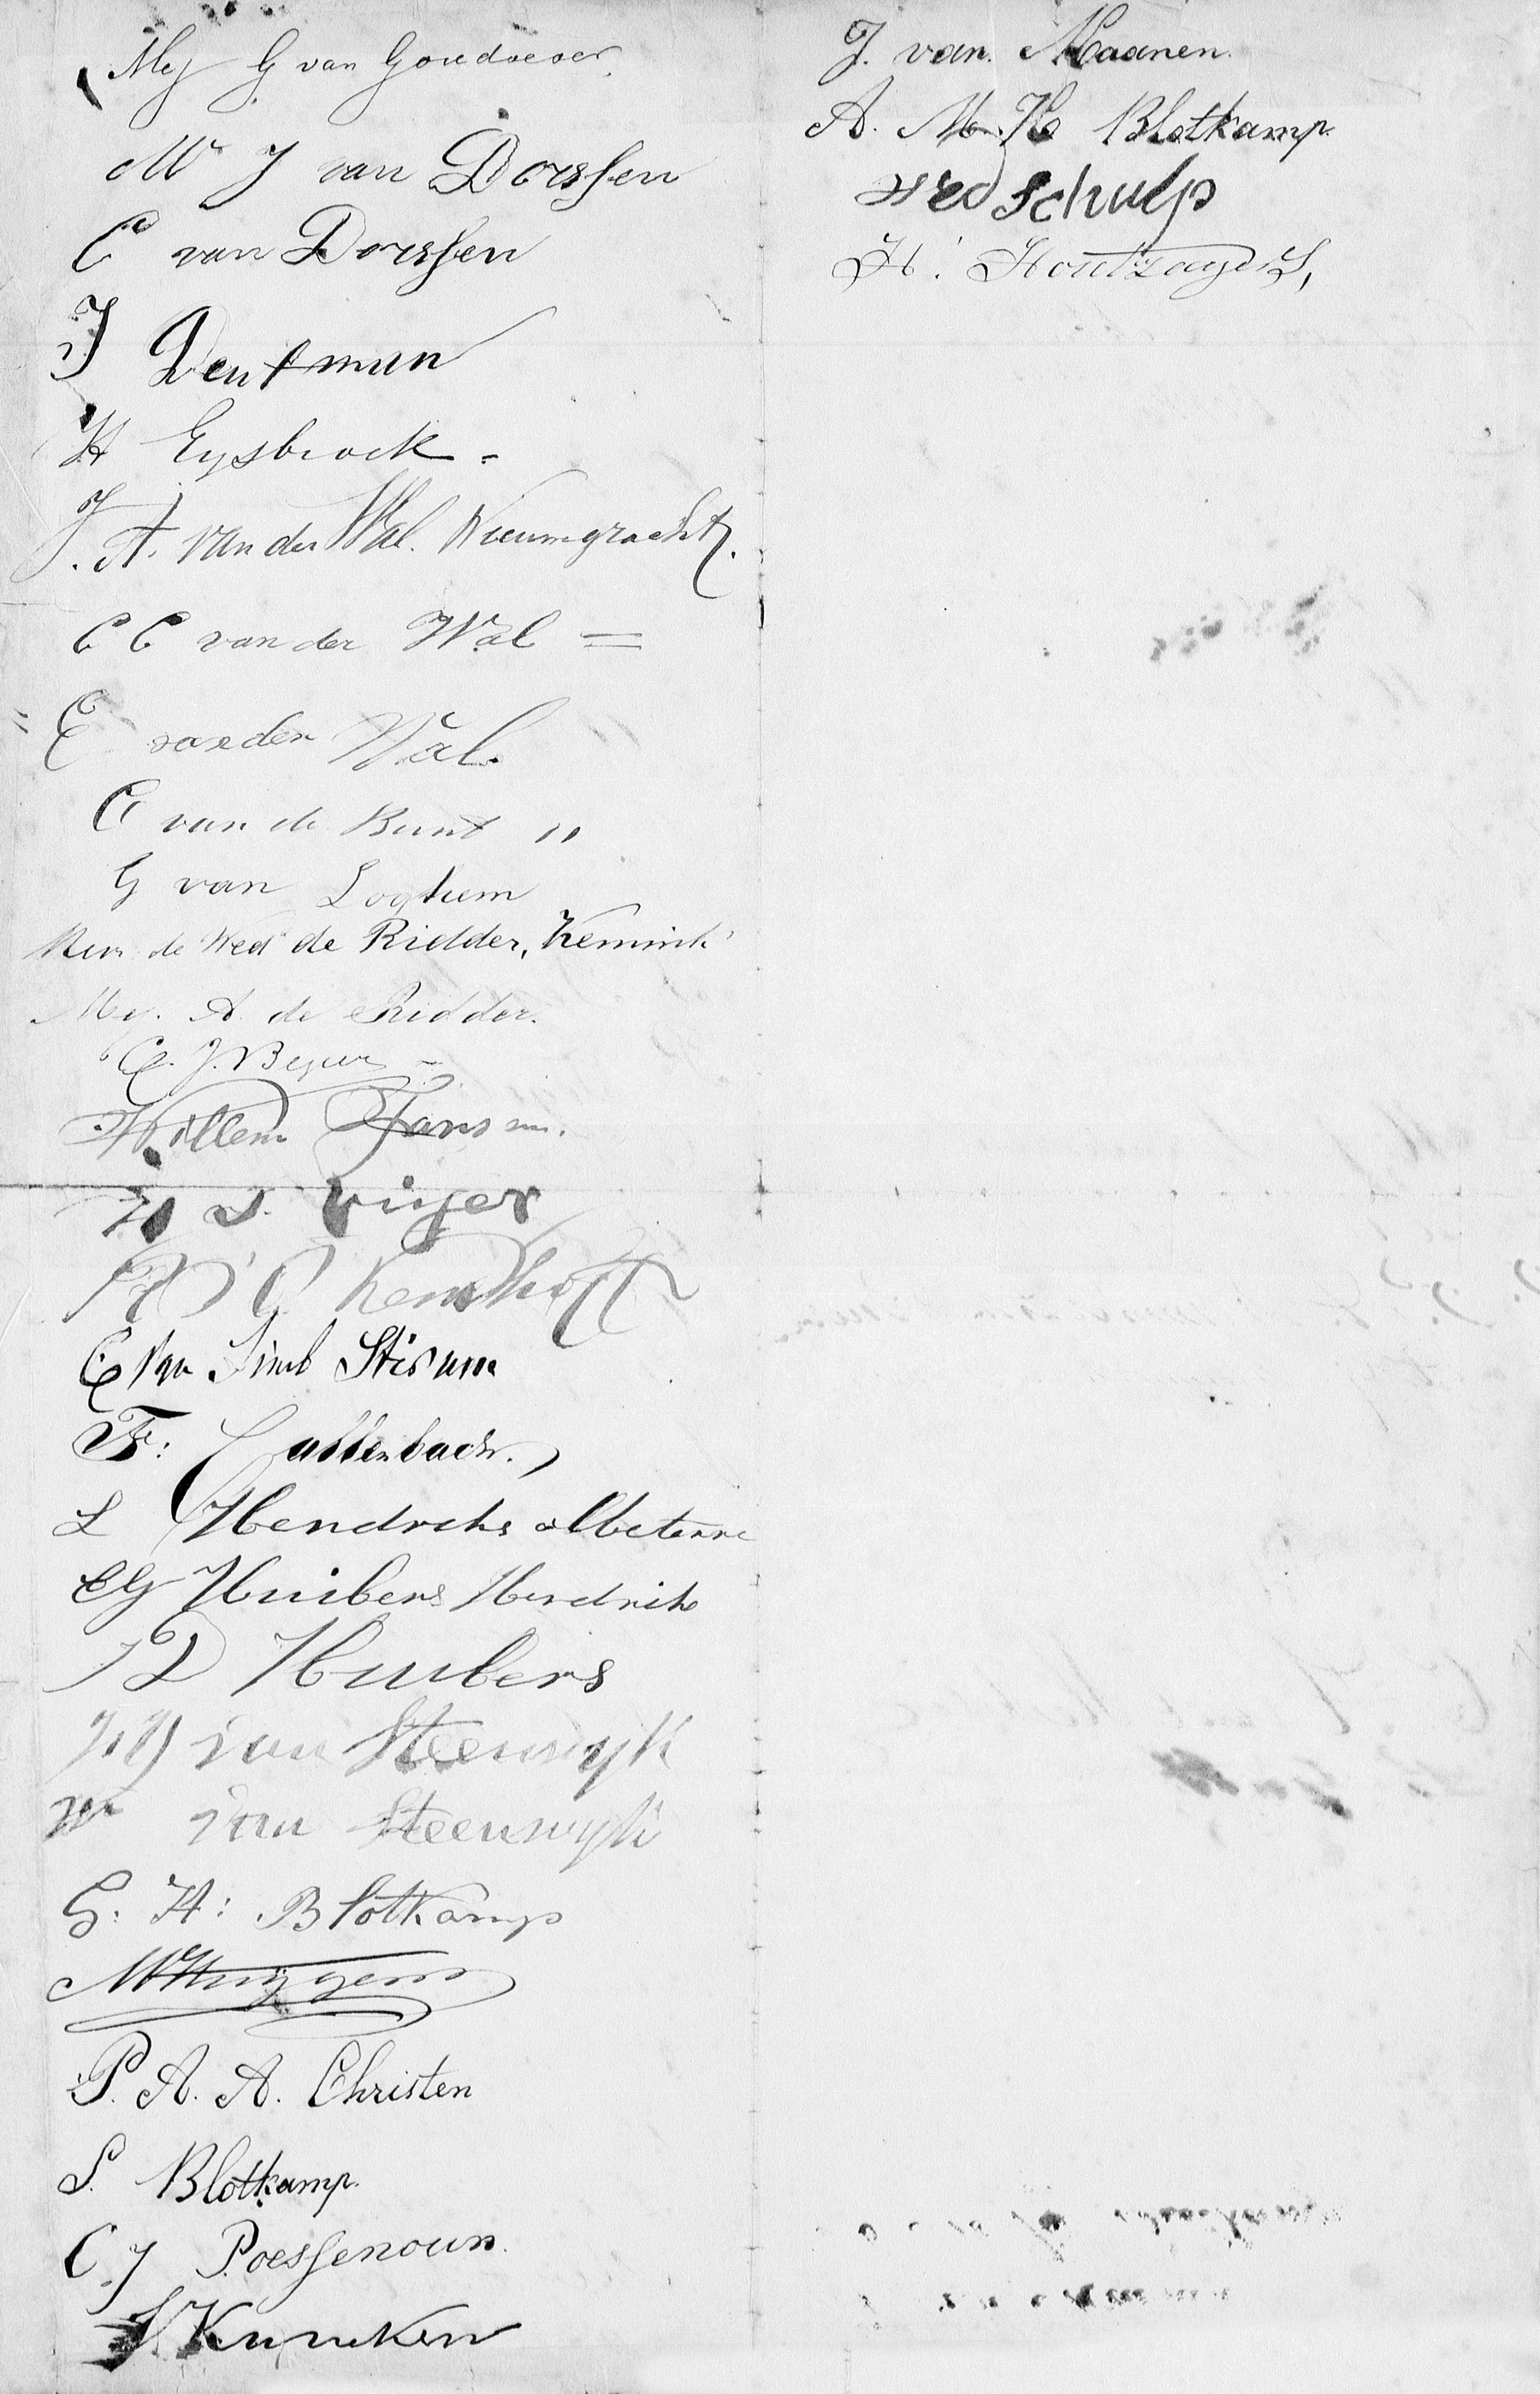 Mej G van Goudoever
Mr J van Dorssen
C van Dorssen
J Dentman
H Eysbroek -
J. A. van der Wal. Nieuwgracht.
C C van der Wal =
E van der Wal.
C van de Bunt "
G van Loghem
Mevr de Wed de Ridder, Kemink
Mej. A. de Ridder.
C. J. Beyer -
Willem Jansen.
D. Vinjer
G Kemhoff
C van Limb Stirum
F: Callenbach.
L Hendriks
C G Huibers Hendriks
D Huibers
van Steenwyk
W van Steenwyk
G. H: Blotkamp
M Huygens
P. A. A. Christen
S. Blotkamp.
C. J Poessenouw.
Kuneken
J. van Maanen.
A. M. H Blotkamp.
wed Schulp
H. Houtzagers,